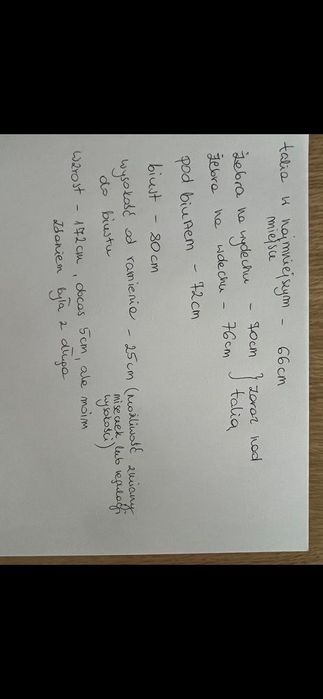 talia w najmniejszym - 66cm
miejscu
żebra na wydechu - 70cm } zaraz nad
żebra na wdechu - 76cm } talią
pod biustem - 72cm
biust - 80cm
wysokość od ramienia - 25cm (możliwość zmiany
do biustu miseczek lub regulacji
wysokości)
wzrost - 172cm, obcas 5cm, ale moim
zdaniem była z długa